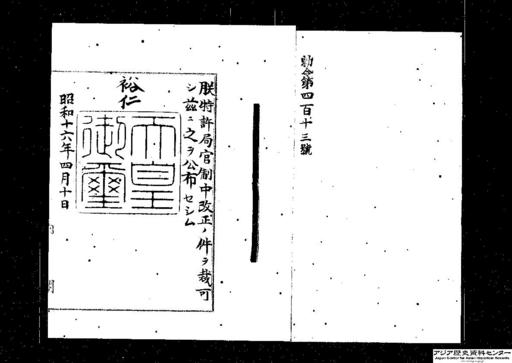 勅令第四百十三號
朕特許局官制中改正ノ件ヲ裁可
シ茲ニ之ヲ公布セシム
裕仁
天皇
御璽
昭和十六年四月十日
アジア歴史資料センター
Japan Center for Asian Historical Records